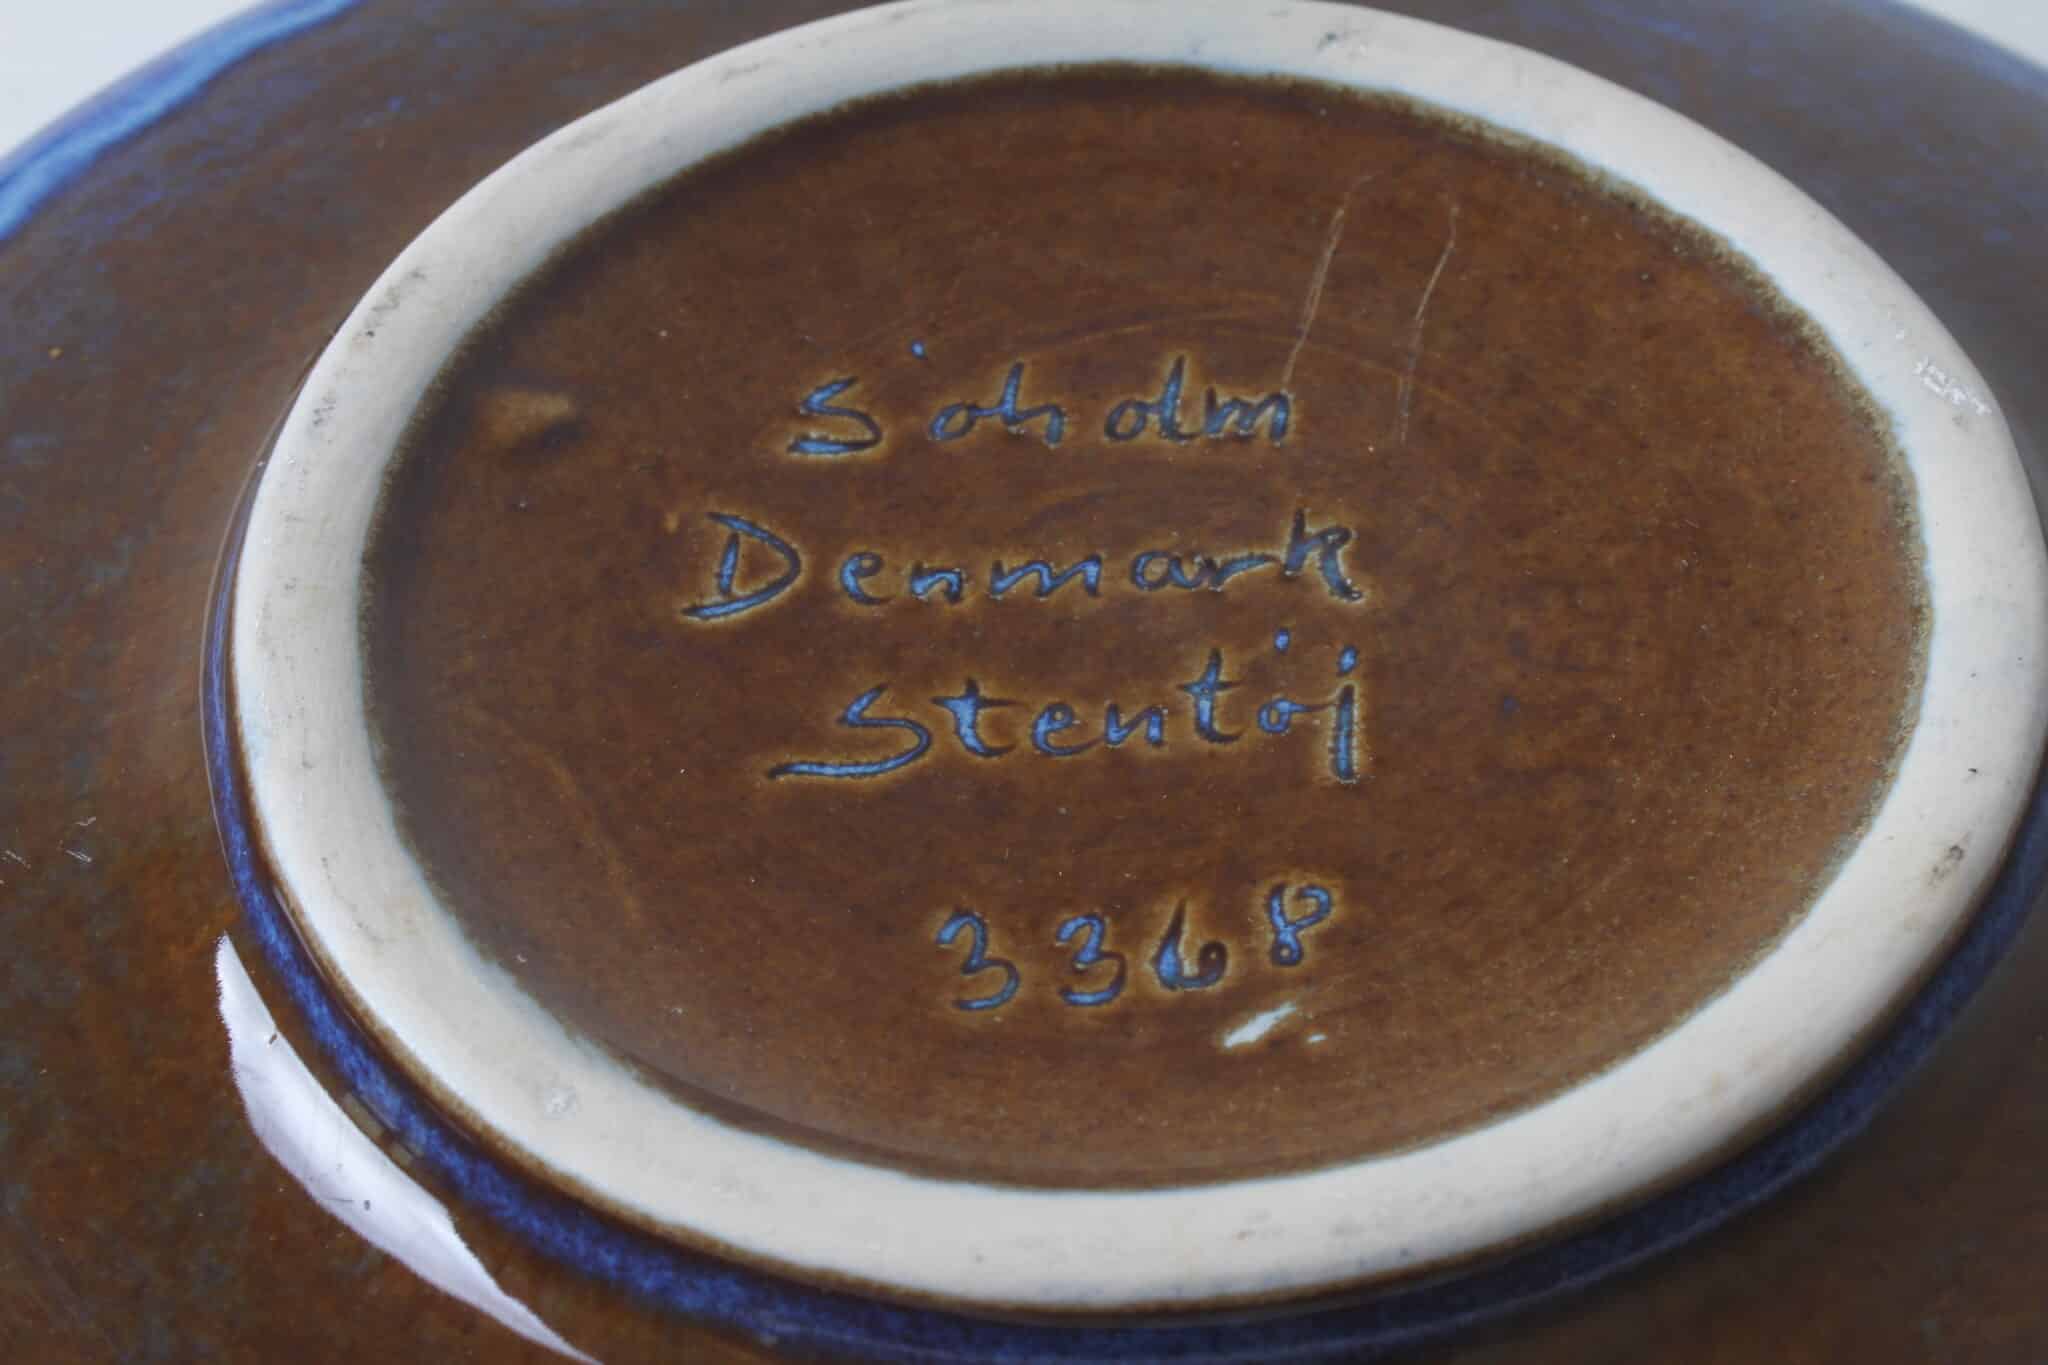 Söholm
Denmark
Stentöj
3368